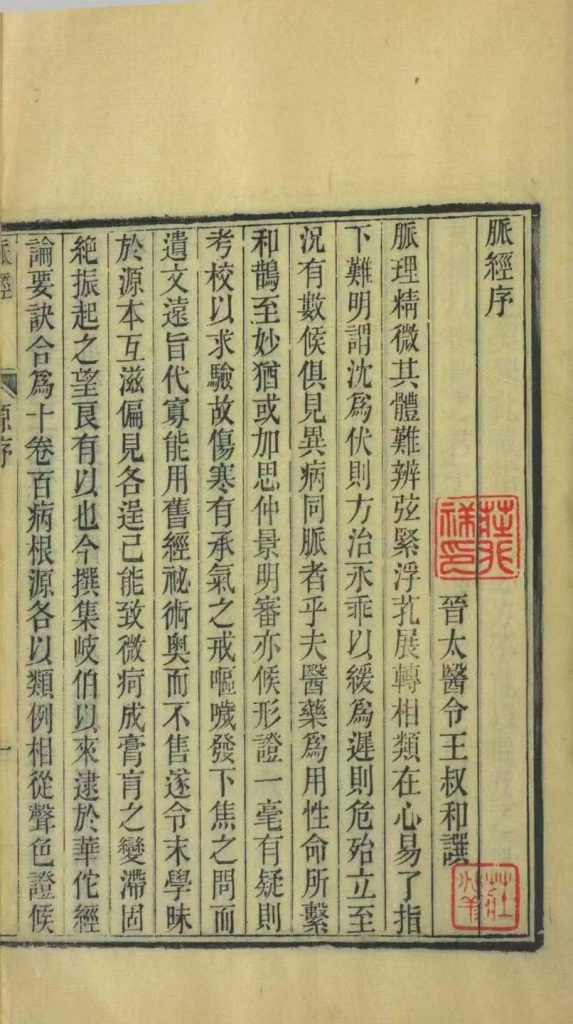 脈經序
晉太醫令王叔和譔
脈理精微其體難辨弦緊浮芤展轉相類在心易了指
下難明謂沈爲伏則方治永乖以緩爲遲則危殆立至
況有數候俱見異病同脈者乎夫醫藥爲用性命所繫
和鵲至妙猶或加思仲景明審亦候形證一毫有疑則
考校以求驗故傷寒有承氣之戒嘔噦發下焦之問而
遺文遠旨代寡能用舊經祕術奧而不售遂令末學昧
於源本互滋偏見各逞己能致微痾成膏肓之變滯固
絶振起之望良有以也今撰集岐伯以來逮於華佗經
論要訣合爲十卷百病根源各以類例相從聲色證候
脈經
序
一